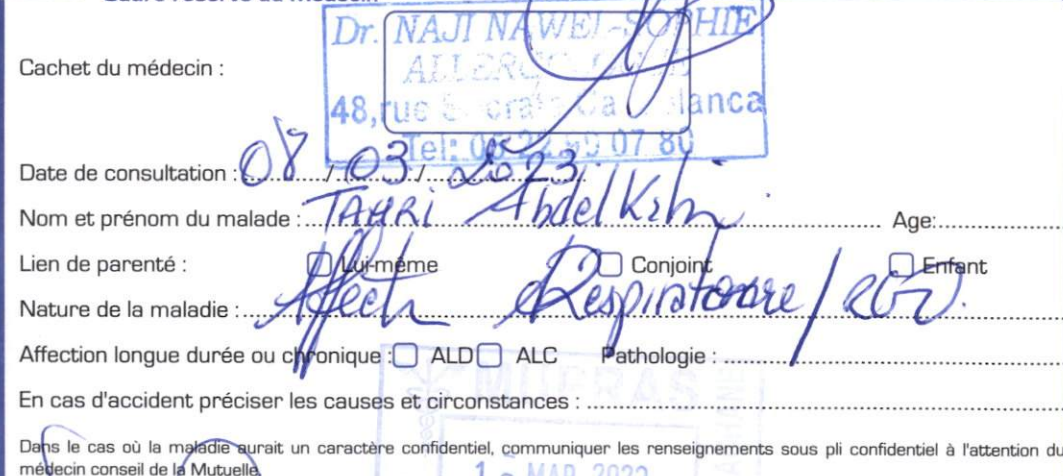 Cadre réservé au médecin
Dr. NAJI NAWEL-SOPHIE
Cachet du médecin :
48, rue
Tel: 05 22
07 80
Date de consultation : 08 / 03 / 2023
Nom et prénom du malade : TAHRI Abdelkrim Age:
Lien de parenté : Lui-même Conjoint Enfant
Nature de la maladie : Respiratoire /
Affection longue durée ou chronique : ALD ALC Pathologie :
En cas d'accident préciser les causes et circonstances :
MUPRAS
Dans le cas où la maladie aurait un caractère confidentiel, communiquer les renseignements sous pli confidentiel à l'attention du
médecin conseil de la Mutuelle.
MAR. 2023